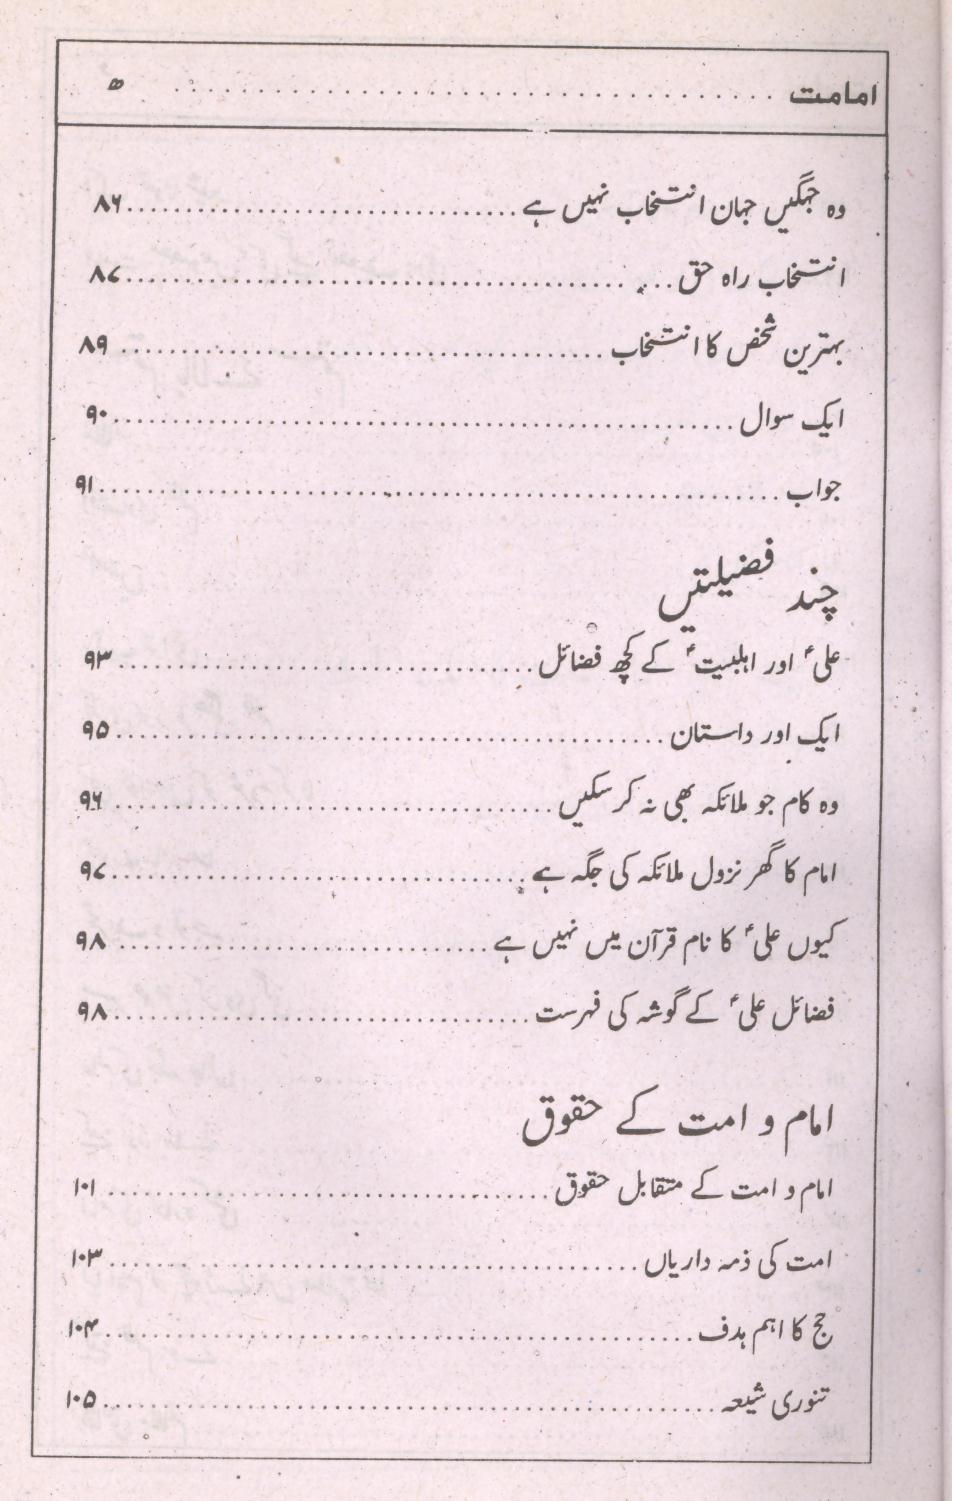 امامت ........................................ ۵
وہ جگہیں جہان انتخاب نہیں ہے ........................................ ۸۶
انتخاب راہ حق ........................................ ۸۷
بہترین شخص کا انتخاب ........................................ ۸۹
ایک سوال ........................................ ۹۰
جواب ........................................ ۹۱
چند فضیلتیں
علی ؑ اور اہلبیت ؑ کے کچھ فضائل ........................................ ۹۳
ایک اور داستان ........................................ ۹۵
وہ کام جو ملائکہ بھی نہ کر سکیں ........................................ ۹۶
امام کا گھر نزول ملائکہ کی جگہ ہے ........................................ ۹۷
کیوں علی ؑ کا نام قرآن میں نہیں ہے ........................................ ۹۸
فضائل علی ؑ کے گوشہ کی فہرست ........................................ ۹۸
امام و امت کے حقوق
امام و امت کے متقابل حقوق ........................................ ۱۰۱
امت کی ذمہ داریاں ........................................ ۱۰۳
حج کا اہم ہدف ........................................ ۱۰۴
تنوری شیعہ ........................................ ۱۰۵